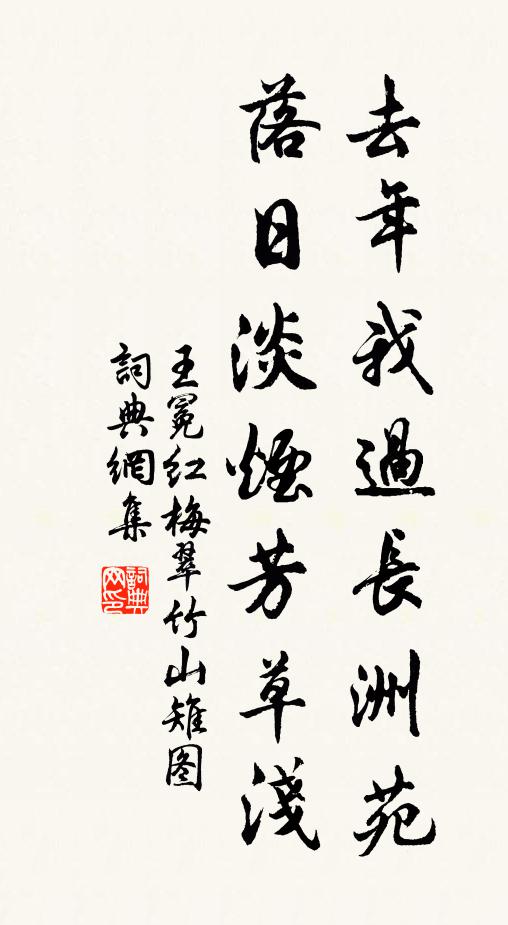 去年我過長洲苑
落日淡煙芳草淺
王冕红梅翠竹山雉图
詞典網集
詞典网印